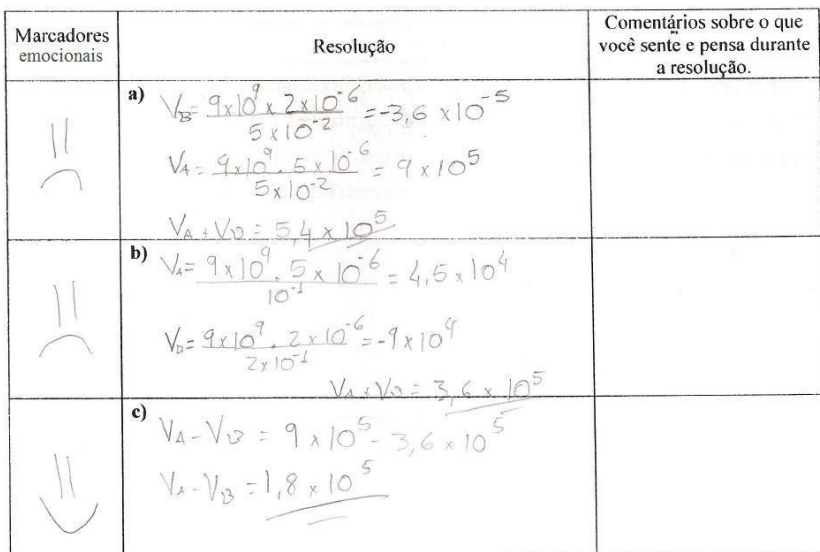 Marcadores
emocionais
Resolução
Comentários sobre o que
você sente e pensa durante
a resolução.
a) V_B = 9x10^9 x 2x10^-6 / 5x10^-2 = -3,6 x10^-5
V_A = 9x10^9 . 5x10^-6 / 5x10^-2 = 9x10^5
V_A + V_B = 5,4 x 10^5
b) V_A = 9x10^9 . 5x10^-6 / 10^-1 = 4,5 x 10^4
V_B = 9x10^9 . 2x10^-6 / 2x10^-1 = -9x10^4
V_A + V_B = 3,6 x 10^5
c) V_A - V_B = 9x10^5 - 3,6 x 10^5
V_A - V_B = 1,8 x 10^5